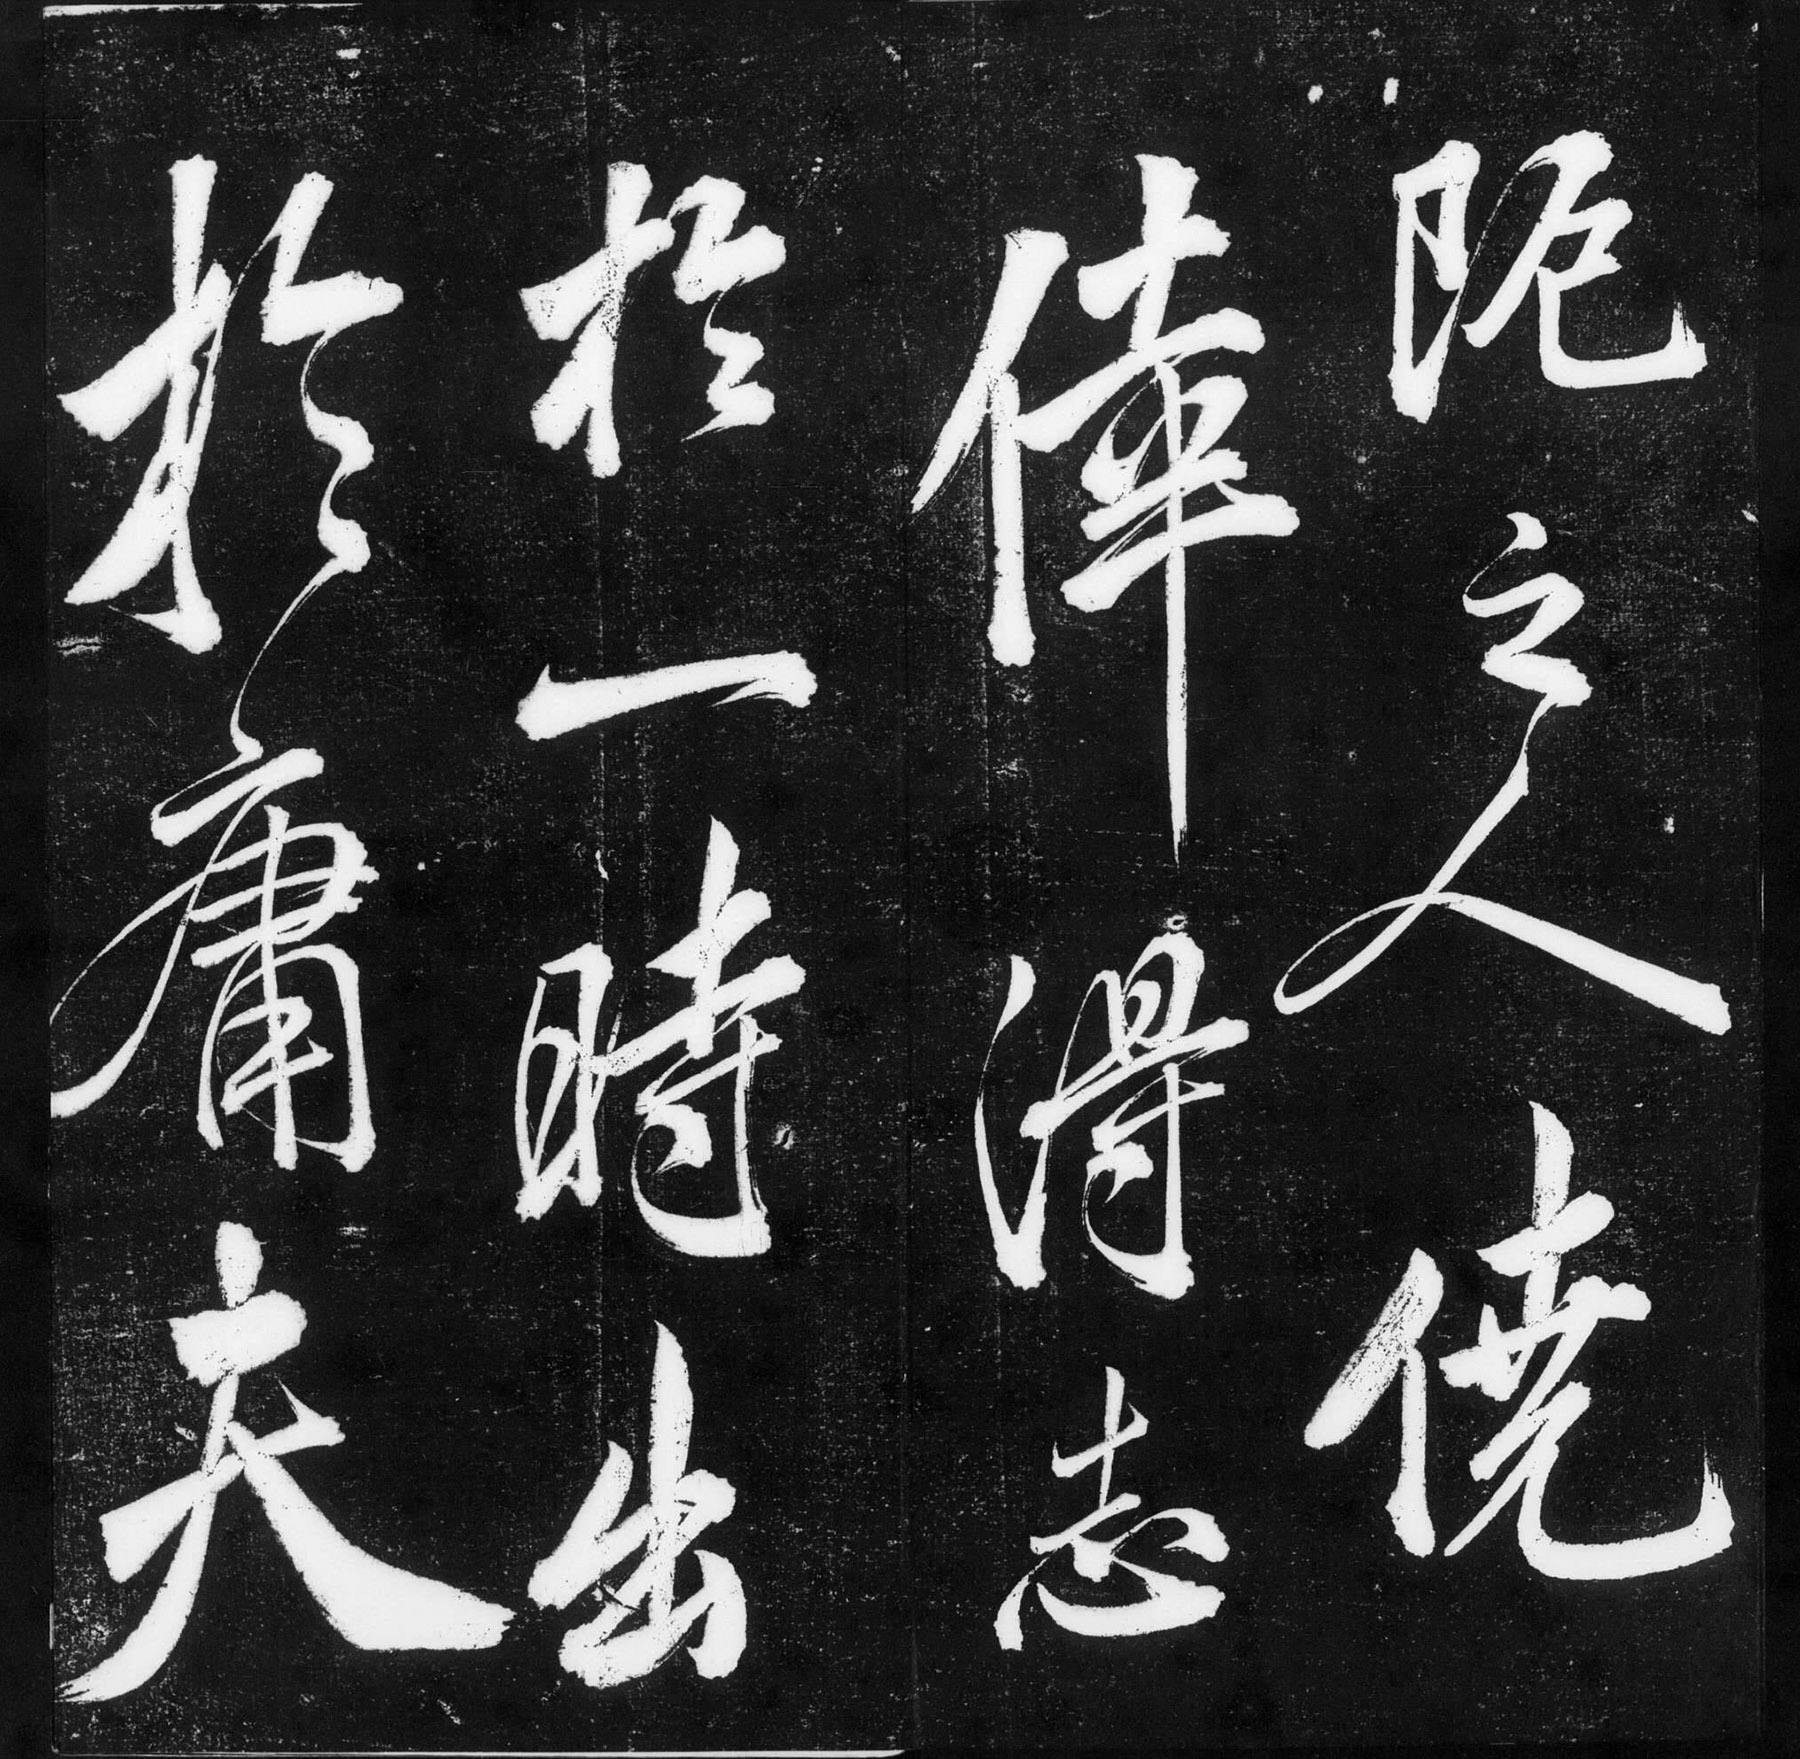 阨之人僥
倖得志
於一時出
於庸夫